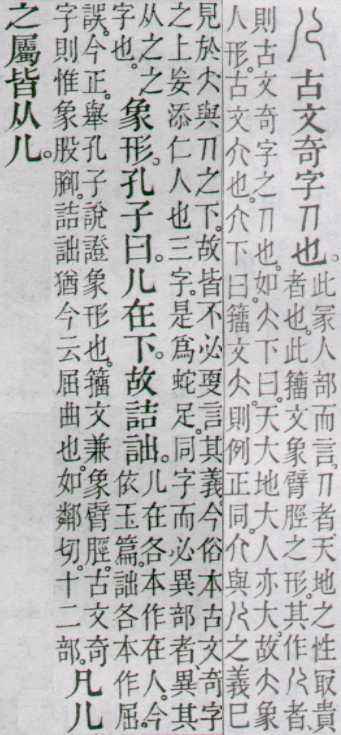 儿古文奇字人也。
此冡人部而言。人者天地之性㝡貴
者也。此籒文象臂脛之形。其作儿者、
則古文奇字之人也。如大下曰。天大地大人亦大。故大象
人形。古文亣也。亣下曰籒文大。則例正同。亣與儿之義巳
見於大與人之下。故皆不必㪅言其義。今俗本古文奇字
之上妄添仁人也三字。是爲蛇足。同字而必異部者、異其
从之之
字也。
象形。孔子曰。儿在下。故詰詘。
儿在各本作在人。今
依玉篇。詘各本作屈。
誤。今正。舉孔子說證象形也。籒文兼象臂脛。古文奇
字則惟象股腳。詰詘猶今云屈曲也。如鄰切。十二部。
凡儿
之屬皆从儿。